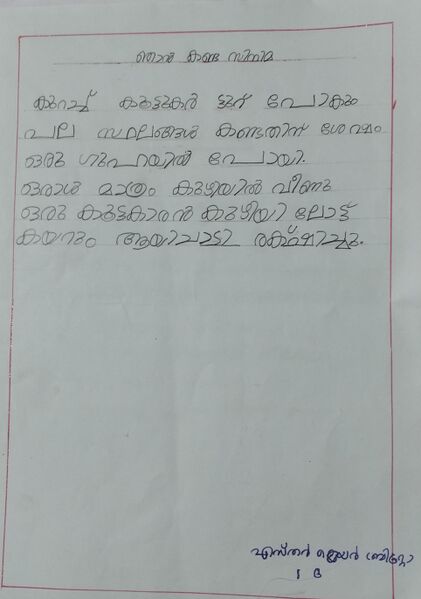 ഞാൻ കണ്ട സിനിമ
കുറച്ച് കൂട്ടുകാർ ടൂറ് പോകും
പല സ്ഥലങ്ങൾ കണ്ടതിന് ശേഷം
ഒരു ഗുഹയിൽ പോയി.
ഒരാൾ മാത്രം കുഴിയിൽ വീണു
ഒരു കൂട്ടകാരൻ കുഴിയി ലോട്ട്
കയറും ആയിചാടി രക്ഷിച്ചു.
എസ്തർ
1 B